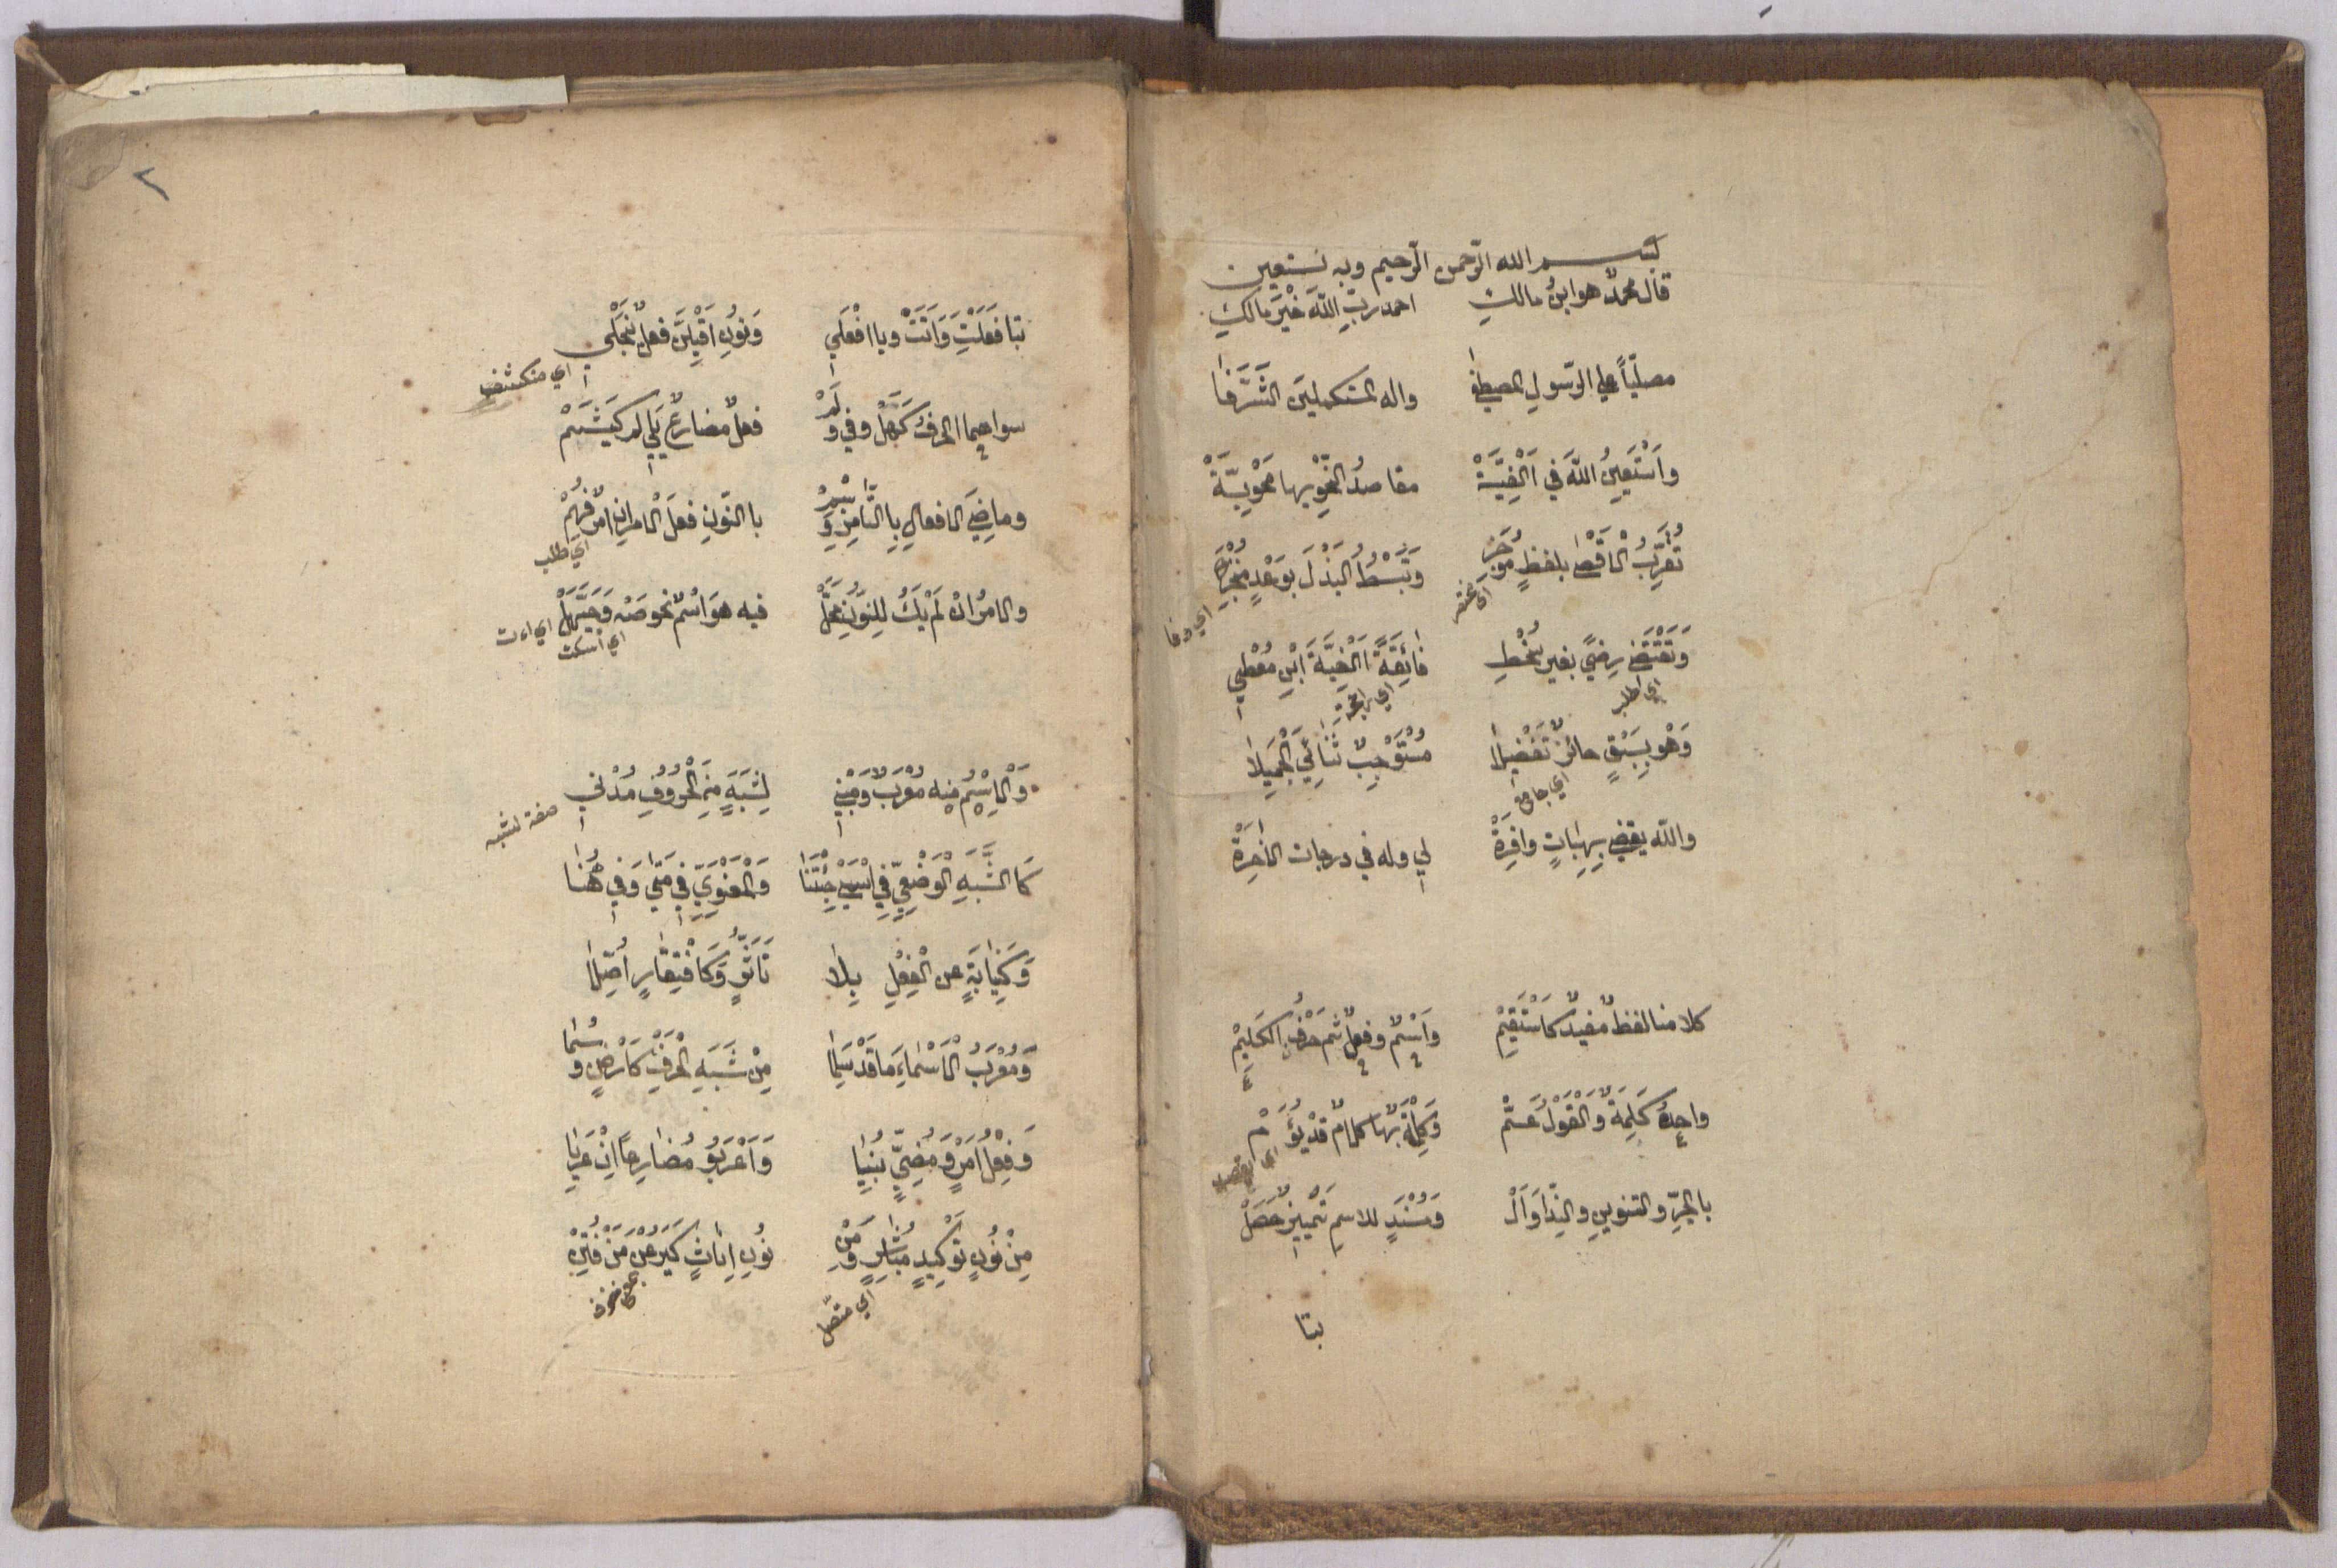 بسم الله الرّحمن الرّحيم وبه نستعين
قال محمدٌ هو ابنُ مالكِ احمد ربّي اللّهَ خَيْرَ مالكِ
مصلّياً على الرّسولِ المصطفىٰ واله المستكملينَ الشَّرَفَا
واَسْتَعِينُ اللّهَ في اَلْفِيَّةْ مقاصدُ النَّحْوِ بها مَحْوِيَّةْ
تُقَرِّبُ الْاَقْصىٰ بلفظٍ مُوجَزِ وَتَبْسُطُ الْبَذْلَ بوَعْدٍ مُنْجَزِ
اي مختصر
اي وفا
وَتَقْتَضي رِضًي بغيرِ سُخْطِ فَائِقَةً اَلْفِيَّةَ ابْنِ مُعْطِي
اي اطلب
وَهْوَ بِسَبْقٍ حائزٌ تَفْضِيلَا مُسْتَوْجِبٌ ثَنَائِيَ الْجَمِيلَا
اي جامع
واللّه يقضي بِهِبَاتٍ وافِرَةْ لي وله في درجات الآخِرَةْ
كلامنا لفظٌ مفيدٌ كَاسْتَقِمْ واِسْمٌ وفعلٌ ثم حَرْفٌ الكَلِمْ
واحِدُهُ كَلِمَةٌ وَالْقَوْلُ عَمّْ وَكِلْمَةٌ بها كلامٌ قَدْ يُؤَمْ
اي يقصد
بالجرِّ والتنوينِ والنِّدَا وَاَلْ وَمُسْنَدٍ للاسمِ تَمْيِيزٌ حَصَلْ
بتا
٢
بتا فَعَلْتَ وَاَتَتْ ويا افْعَلِي وَنُونِ اَقْبِلَنَّ فعلٌ يَنْجَلي
اي منكشف
سواهما الحرفُ كَهَلْ وفي وَلَمْ فعلٌ مضارعٌ يَلي لم كَيَشَمْ
وماضيَ الافعالِ بالتَّا مِزْ وَسِمْ بالنّونِ فعلَ الامرِ ان امرٌ فُهِمْ
اي طلب
والامرُ انْ لَمْ يَكُ لِلنونِ مَحَلّْ فيه هوَ اسْمٌ نحو صَهْ وَحَيَّهَلْ
اي اسكت
اي ائت
وَالِاسْمُ مِنْه مُعْرَبٌ وَمَبْنِي لِشَبَهٍ مِنَ الْحُرُوفِ مُدْنِي
صفة لشبه
كَالشَّبَهِ الْوَضْعِيِّ فِي اسْمَيْ جِئْتَنَا وَالْمَعْنَوِيِّ في مَتىٰ وَفِي هُنَا
وَكَنِيَابَةٍ عن الْفِعْلِ بِلَا تَاَثُّرٍ وَكَافْتِقَارٍ اُصِّلَا
وَمُعْرَبُ الْاَسْمَاءِ مَا قَدْ سَلِمَا مِنْ شَبَهِ الْحَرْفِ كَاَرْضٍ وسُمَا
وَفِعْلُ اَمْرٍ وَمُضِيٍّ بُنِيَا وَاَعْرَبُو مُضَارِعاً اِنْ عَرِيَا
مِنْ نُونِ تَوْكِيدٍ مُبَاشِرٍ وَمِنْ نُونِ اِنَاثٍ كَيَرُعْنَ مَنْ فُتِنْ
اي متصل